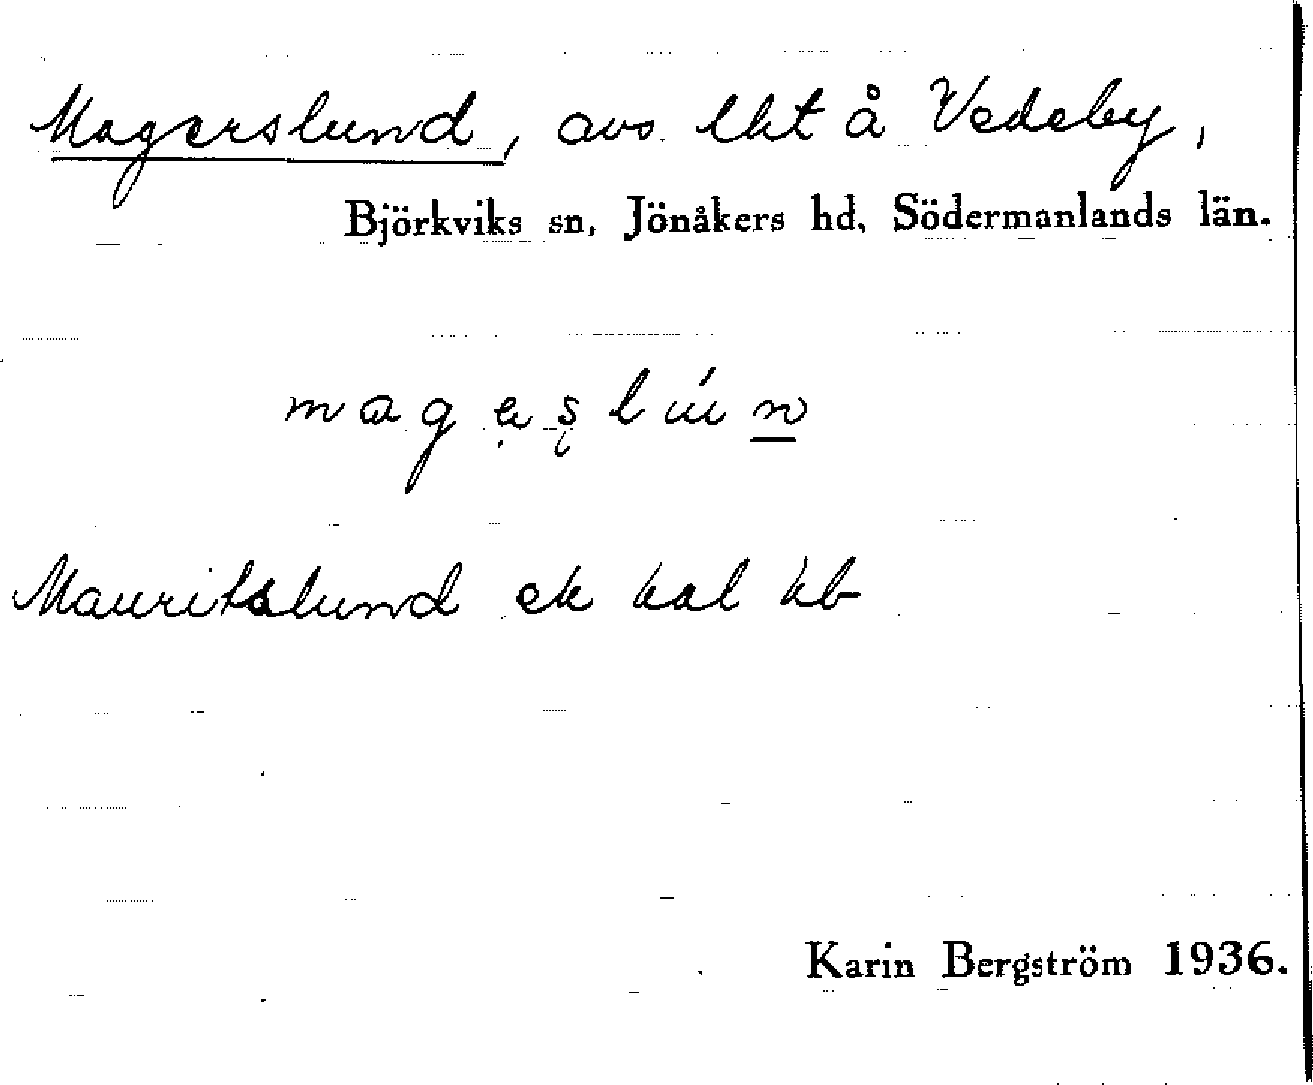 Magerslund, avs. lht å Vedeby,
Björkviks sn, Jönåkers hd, Södermanlands län.
magẹş lúṉ
Mauritslund ek kal kb
Karin Bergström 1936.